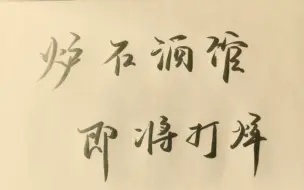 炉石酒馆
即将打烊